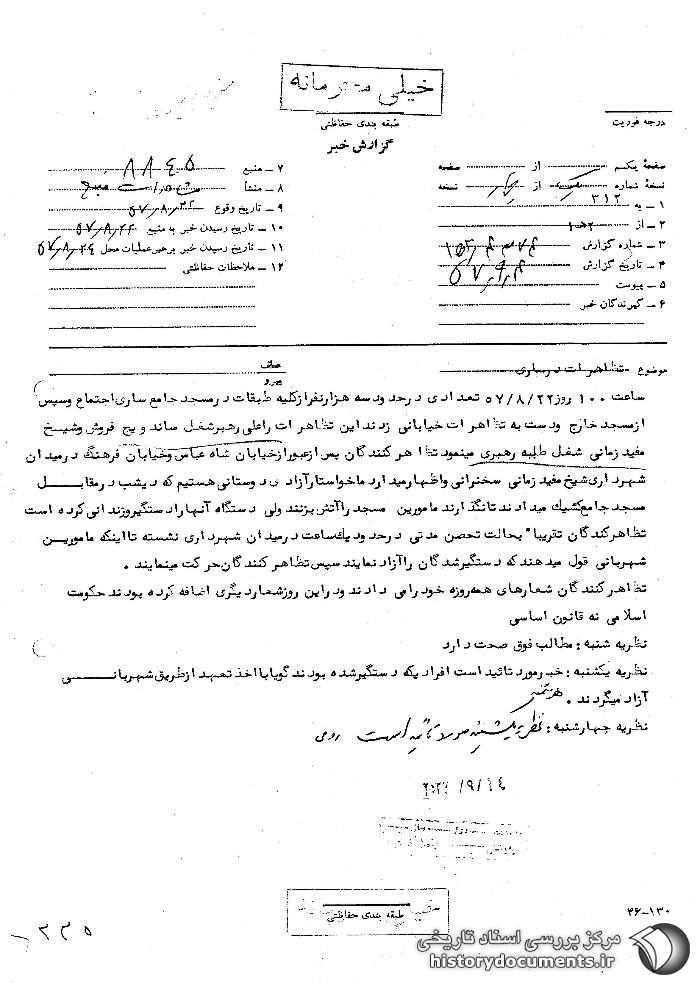 خیلی محرمانه
طبقه بندی حفاظتی
گزارش خبر
درجه فوریت
صفحهٔ یکم از صفحه
نسخهٔ شماره یک از چهار نسخه
۱ – به ۳۱۲
۲ – از ۲هـ۱
۳ – شماره گزارش
۴ – تاریخ گزارش ۵۷٫۹٫۴
۵ – پیوست
۶ – گیرندگان خبر
۷ – منبع ۸۸۴۵
۸ – منشأ
۹ – تاریخ وقوع
۱۰ – تاریخ رسیدن خبر به منبع
۱۱ – تاریخ رسیدن خبر برهبرعملیات محل ۵۷٫۸٫۲۴
۱۲ – ملاحظات حفاظتی
موضوع – تظاهرات درساری
عطف
پیرو
ساعت ۱۰۰ روز ۵۷/۸/۲۲ تعدادی درحدود سه هزارنفرازکلیه طبقات درمسجد جامع ساری اجتماع وسپس
ازمسجد خارج ودست به تظاهرات خیابانی زدند این تظاهرات راعلی رهبرشغل ساندویچ فروش وشیخ
مفید زمانی شغل طلبه رهبری مینمود تظاهرکنندگان پس ازعبورازخیابان شاه عباس وخیابان فرهنگ درمیدان
شهرداری شیخ مفید زمانی سخنرانی واظهارمیدارد ماخواستارآزادی دوستانی هستیم که دیشب درمقابل
مسجد جامع کشیک میدادند تانگذارند مامورین مسجد راآتش بزنند ولی دستگاه آنهارادستگیروزندانی کرده است
تظاهرکندگان تقریبا" بحالت تحصن مدتی درحدودیک ساعت درمیدان شهرداری نشسته تااینکه مامورین
شهربانی قول میدهندکه دستگیرشدگان راآزاد نمایند سپس تظاهرکنندگان حرکت مینمایند .
تظاهرکنندگان شعارهای همه روزه خودرامی دادند ودراین روزشعاردیگری اضافه کرده بودند حکومت
اسلامی نه قانون اساسی
نظریه شنبه : مطالب فوق صحت دارد
نظریه یکشنبه : خبرمورد تائید است افرادیکه دستگیرشده بودند گویابااخذ تعهد ازطریق شهربانی
آزاد میگردند .
نظریه چهارشنبه : نظریه یکشنبه مورد تائید است رومی
طبقه بندی حفاظتی
۴۶-۱۳۰
۳۳۵
مرکز بررسی اسناد تاریخی
historydocuments.ir